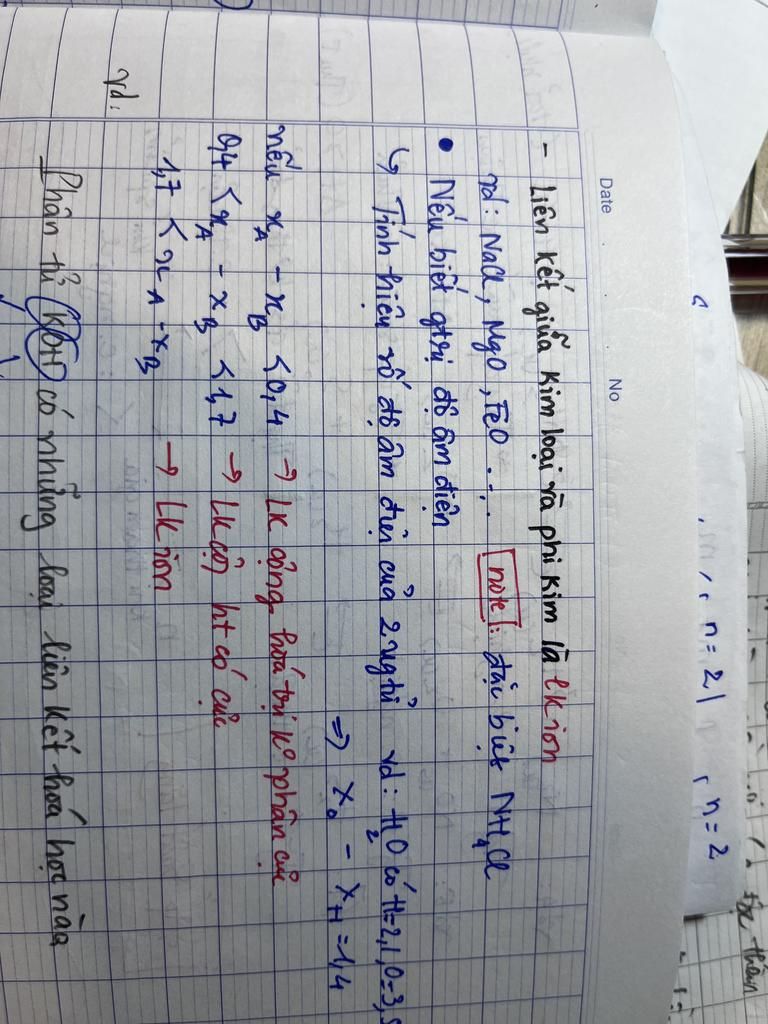 Date No
- Liên kết giữa kim loại và phi kim là lk ion
vd: NaCl, MgO, FeO . . . note: đặc biệt NH4Cl
• Nếu biết gtrị độ âm điện
↳ Tính hiệu số độ âm điện của 2 ngtử vd: H2O có H=2,1, O=3,5
=> xO - xH = 1,4
nếu xA - xB < 0,4 → LK cộng hoá trị ko phân cực
0,4 < xA - xB < 1,7 → LK cộ ht có cực
1,7 < xA - xB → LK ion
vd:
Phân tử KOH có những loại liên kết hoá học nào
n = 2
n = 2